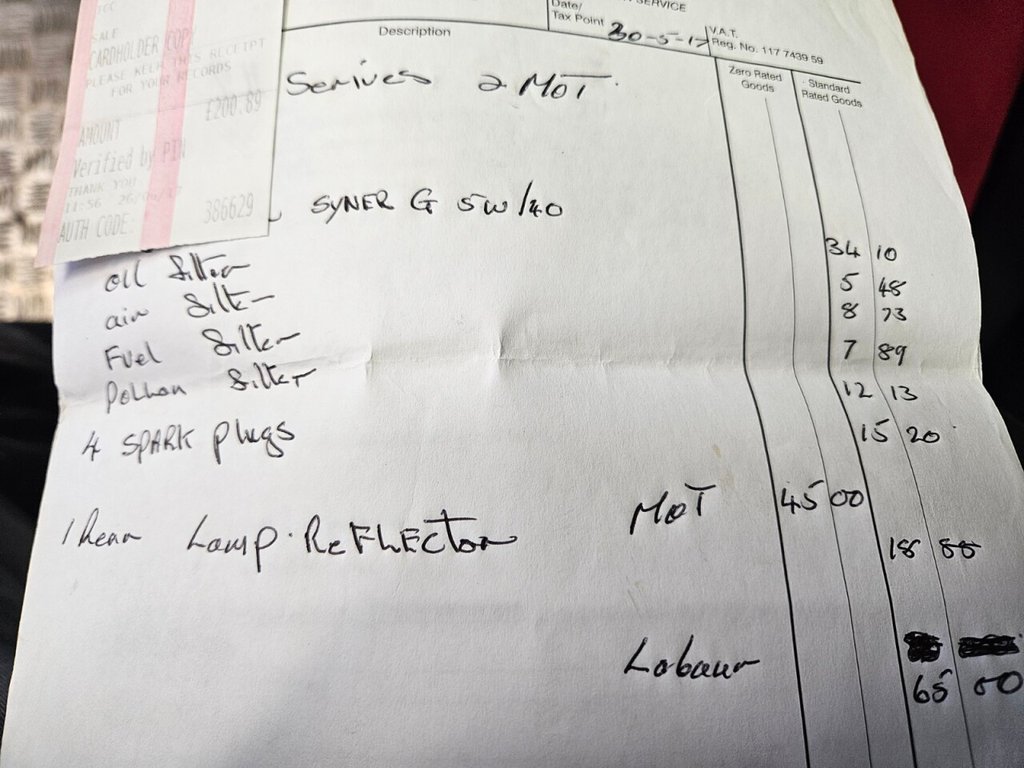 SALE
CARDHOLDER COPY
PLEASE KEEP THIS RECEIPT
FOR YOUR RECORDS
AMOUNT £200.89
Verified by PIN
THANK YOU
11:56
AUTH CODE: 386629
SERVICE
Date/
Tax Point 30-5-17
V.A.T.
Reg. No. 117 7439 59
Description
Zero Rated
Goods
Standard
Rated Goods
Serives & MOT
SYNER G 5W/40 34 10
oil filter 5 48
air filter 8 73
Fuel filter 7 89
Pollon filter 12 13
4 SPARK plugs 15 20
MOT 45 00
1 Rear Lamp. REFLECTOR 18 88
Labour 65 00